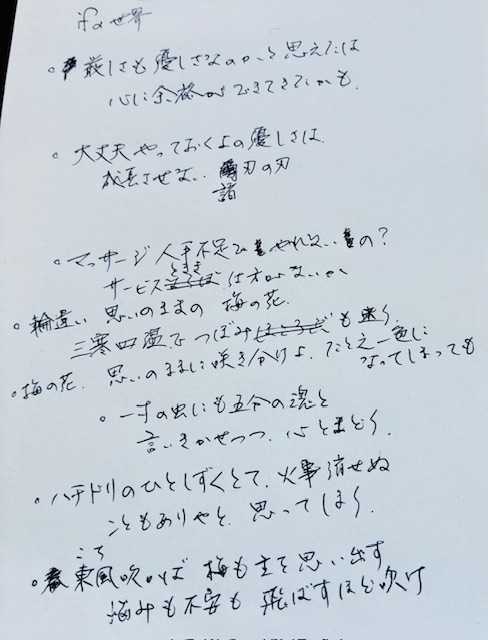 ifの世界
。厳しさも優しさなのかもと思えたは
心に余裕ができてきているかも
。大丈夫やっておくよの優しさは
成長させない 諸刃の刃
。マッサージ人手不足で やれない の?
サービス ときを は
。輪違い 思いのままの 梅の花
三寒四温で つぼみ も 迷う
。梅の花 思いのままに咲き分けよ たとえ一色に
なってしまっても
。一寸の虫にも五分の魂と
言いきかせつつ 心とまどう
。ハチドリのひとしずくとて 火事消せぬ
こともありやと 思ってしまう
こち
。東風吹かば 梅も主を思い出す
悩みも不安も 飛ばすほど吹け